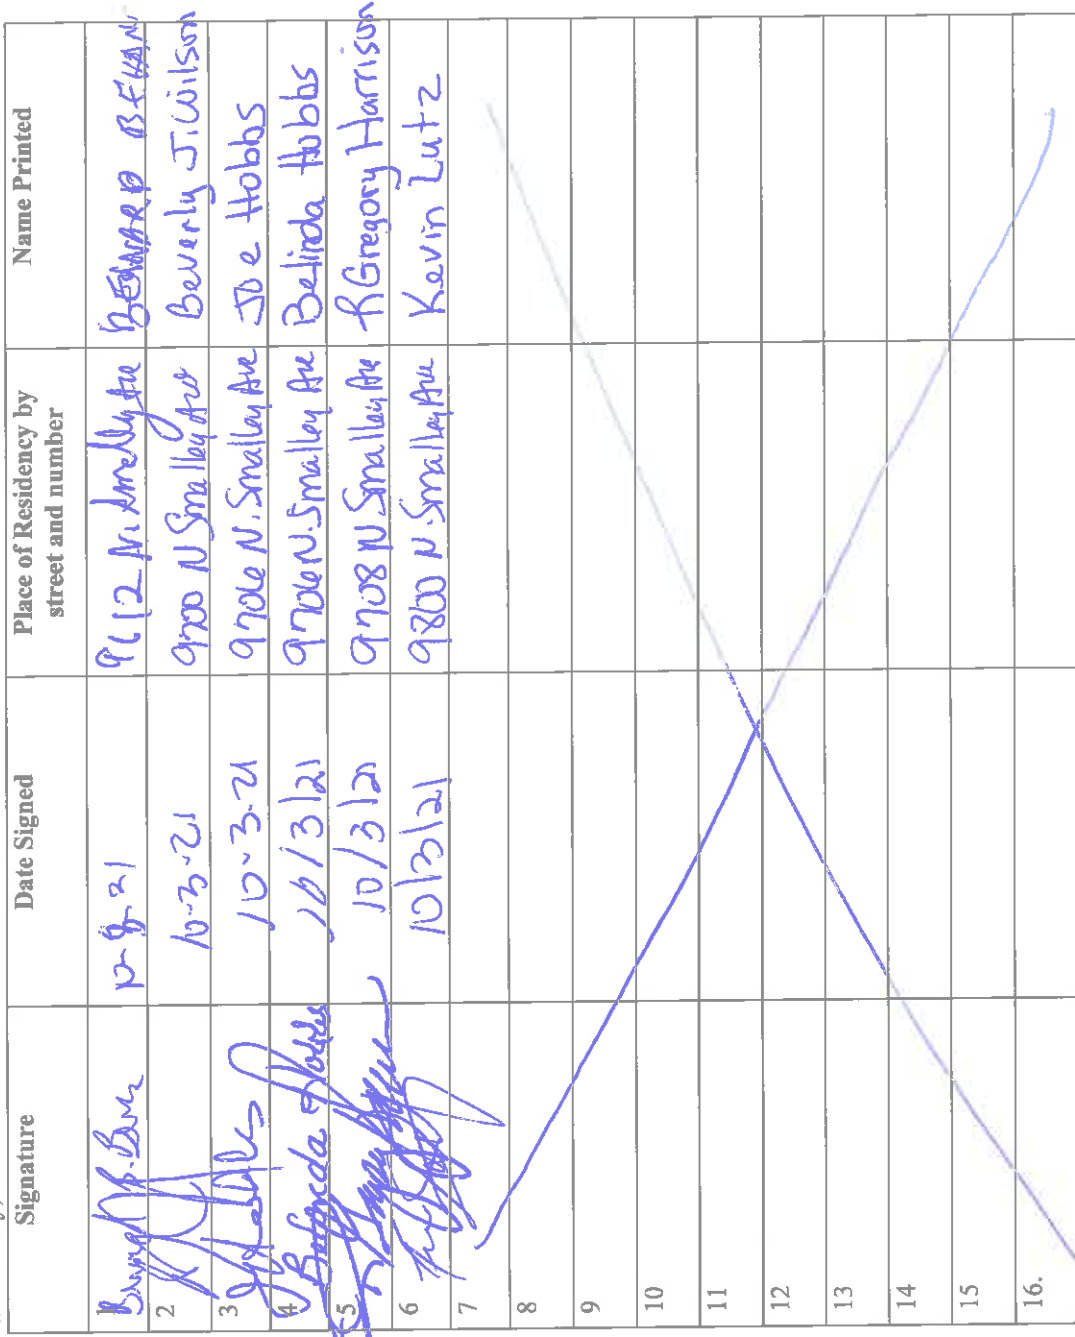 Signature Date Signed Place of Residency by street and number Name Printed
1 10-8-21 9612 N. Smalley Ave BERNARD BEVAN
2 10-3-21 9700 N Smalley Ave Beverly J. Wilson
3 10-3-21 9706 N. Smalley Ave Joe Hobbs
4 Belinda Hobbs 10/3/21 9706 N. Smalley Ave Belinda Hobbs
5. 10/3/21 9708 N Smalley Ave R Gregory Harrison
6 10/3/21 9800 N. Smalley Ave Kevin Lutz
7
8
9
10
11
12
13
14
15
16.